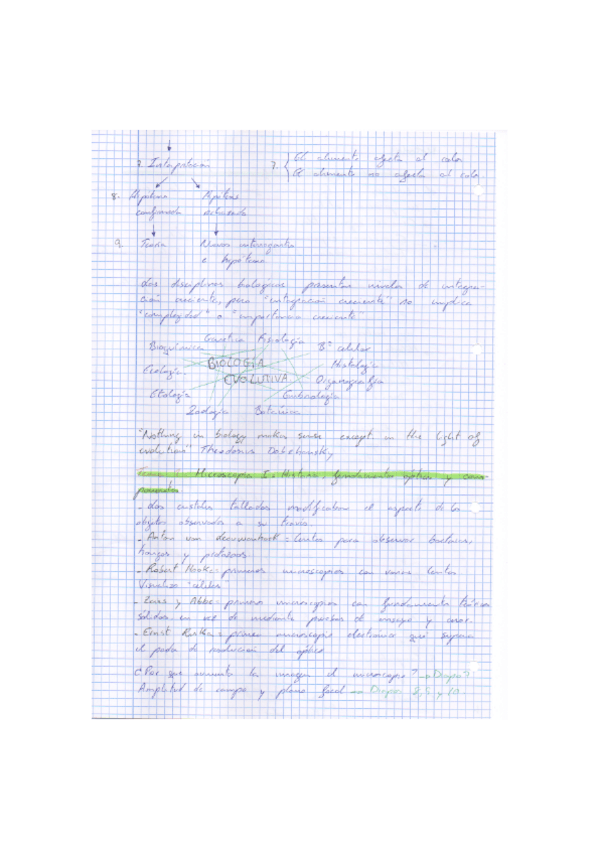 7. Interpretación
7. { El alimento afecta al color
El alimento no afecta al color
8. Hipótesis confirmada
Hipótesis
9. Teoría
Nuevos interrogantes
e hipótesis
Las disciplinas biológicas presentan niveles de integra-
ción creciente, pero "integración creciente" no implica
"complejidad" o "importancia creciente"
Genética Fisiología
Bioquímica Bª celular
BIOLOGÍA
EVOLUTIVA
Histología
Ecología
Organografía
Etología
Embriología
Zoología Botánica
"Nothing in biology makes sense except in the light of
evolution" Theodosius Dobzhansky
Tema 1: Microscopía I. Historia, fundamentos ópticos y com-
ponentes
- Los cristales tallados modificaban el aspecto de los
objetos observados a su través.
- Anton van Leeuwenhoek = Lentes para observar bacterias,
hongos y protozoos
- Robert Hook = primeros microscopios con varias lentes
Visualiza celdas
- Zeiss y Abbe = primeros microscopios con fundamentos teóricos
sólidos en vez de mediante pruebas de ensayo y error.
- Ernst Ruska = primer microscopio electrónico que supera
el poder de resolución del óptico
¿Por qué aumenta la imagen el microscopio? → Diapo 7
Amplitud de campo y plano focal → Diapos 8, 9 y 10